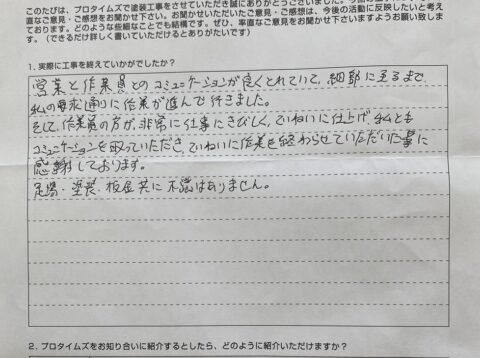 このたびは、プロタイムズで塗装工事をさせていただき誠にありがとうございました。
直なご意見・ご感想をお聞かせ下さい。お聞かせいただいたご意見・ご感想は、今後の活動に反映したいと考え
ております。どのような些細なことでも結構です。ぜひ、率直なご意見をお聞かせ下さいますようお願い致しま
す。（できるだけ詳しく書いていただけるとありがたいです）
1. 実際に工事を終えていかがでしたか？
営業と作業員とのコミュニケーションが良くとれていて、細部に至るまで
私の要求通りに作業が進んで行きました。
そして、作業員の方が、非常に仕事にきびしく、ていねいに仕上げ、私とも
コミュニケーションを取っていただき、ていねいに作業を終わらせていただいた事に
感謝しております。
足場・塗装・板金共に不満はありません。
2. プロタイムズをお知り合いに紹介するとしたら、どのように紹介いただけますか？